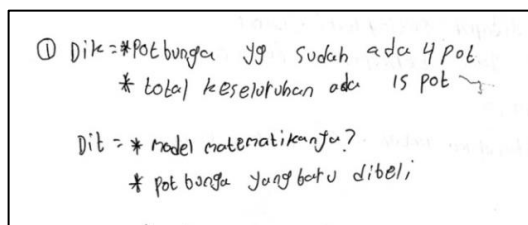 ① Dik = * Pot bunga yg sudah ada 4 pot
* total keseluruhan ada 15 pot
Dit = * model matematikanya?
* pot bunga yang baru dibeli